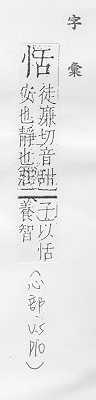 字彙
恬
徒廉切音甜
安也靜也莊
子以恬
養智
(心部